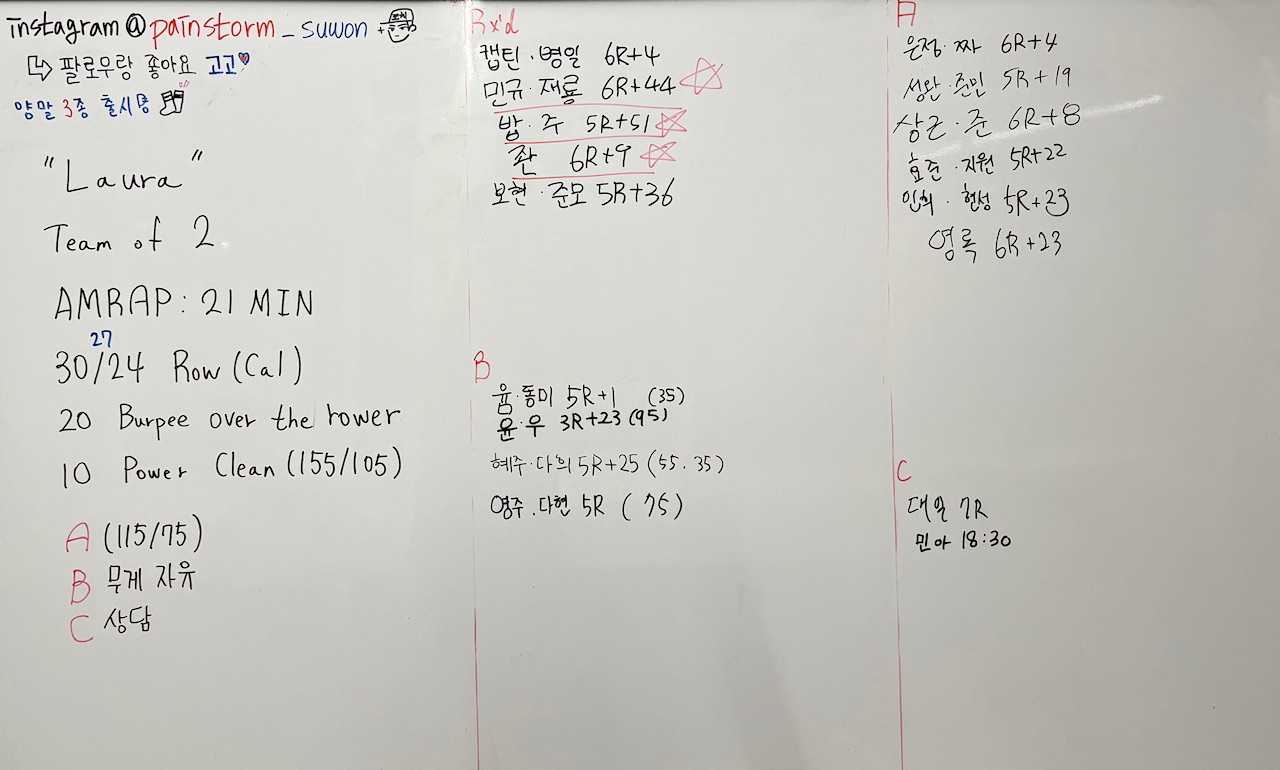 instagram@painstorm_suwon +
↳ 팔로우랑 좋아요 고고♥
양말 3종 출시중
"Laura"
Team of 2
AMRAP: 21 MIN
27
30/24 Row (Cal)
20 Burpee over the rower
10 Power Clean (155/105)
A (115/75)
B 무게 자유
C 상담
Rx'd
캡틴·병일 6R+4
민규·재룡 6R+44 ☆
밥·주 5R+51 ☆
좐 6R+9 ☆
보현·준모 5R+36
B
윰·똥미 5R+1 (35)
윤·우 3R+23 (95)
혜주·다희 5R+25 (55. 35)
영주.다현 5R (75)
A
은정·짜 6R+4
성완·준민 5R+19
상근·준 6R+8
효준·지원 5R+22
인희·현성 5R+23
영록 6R+23
C
대일 7R
민아 18:30